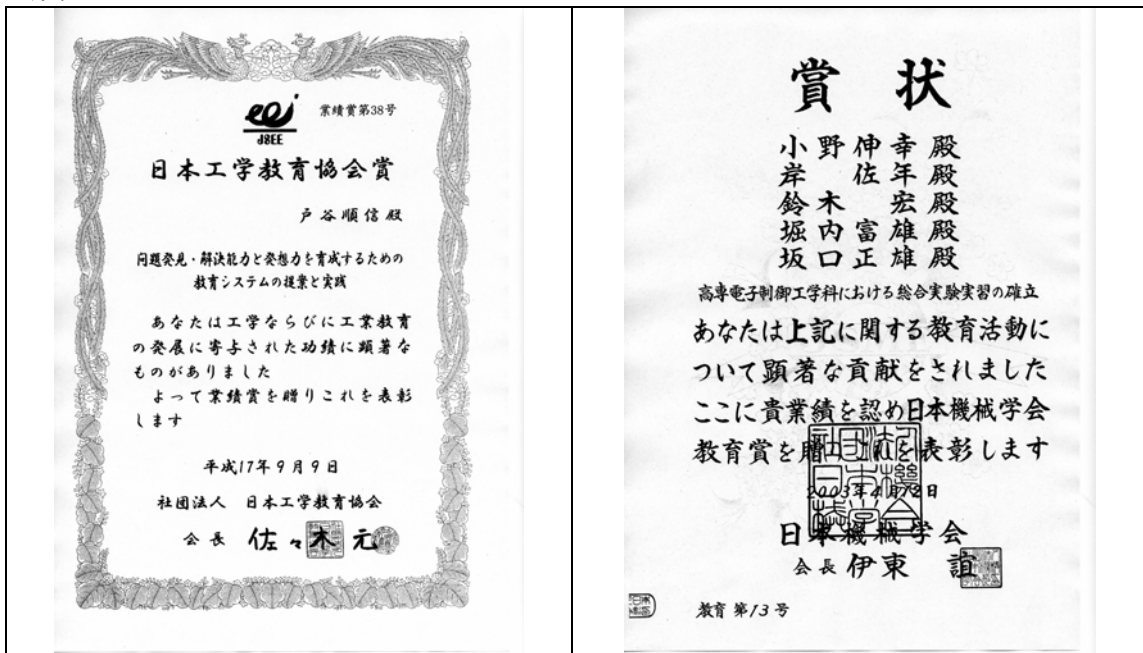 JSEE
業績賞第38号
日本工学教育協会賞
戸谷順信殿
問題発見・解決能力と発想力を育成するための
教育システムの提案と実践
あなたは工学ならびに工業教育
の発展に寄与された功績に顕著な
ものがありました
よって業績賞を贈りこれを表彰
します
平成17年9月9日
社団法人 日本工学教育協会
会長 佐々木元
賞状
小野伸幸殿
岸佐年殿
鈴木宏殿
堀内富雄殿
坂口正雄殿
高専電子制御工学科における総合実験実習の確立
あなたは上記に関する教育活動に
ついて顕著な貢献をされました
ここに貴業績を認め日本機械学会
教育賞を贈りこれを表彰します
2003年4月2日
日本機械学会
会長 伊東誼
教育 第13号